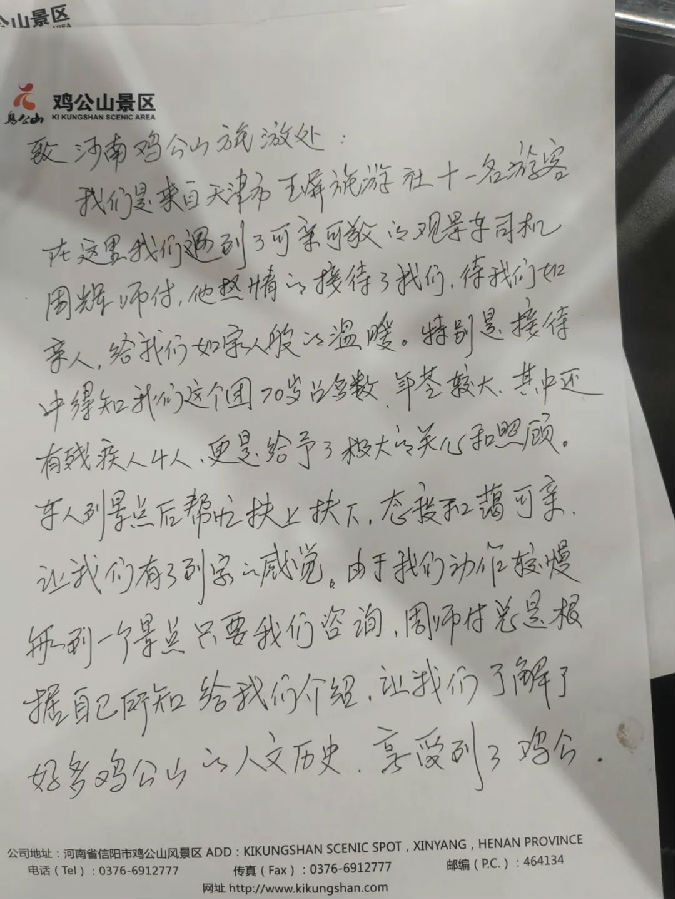 公山景区
SCENIC AREA
鸡公山
鸡公山景区
KIKUNGSHAN SCENIC AREA
致 河南鸡公山旅游处：
我们是来自天津市 旅游社十一名游客
在这里我们遇到了可亲可敬的观景车司机
周辉师付，他热情的接待了我们，待我们如
亲人，给我们如家人般的温暖。特别是接待
中得知我们这个团70岁占多数、年茎较大、其中还
有残疾人4人、更是给予了极大的关心和照顾。
车人到景点后帮忙扶上扶下，态度和蔼可亲、
让我们有了到家的感觉。由于我们动作较慢
每到一个景点只要我们咨询，周师付总是根
据自己所知给我们介绍，让我们了解了
好多鸡公山的人文历史、享受到了鸡公
公司地址：河南省信阳市鸡公山风景区 ADD：KIKUNGSHAN SCENIC SPOT，XINYANG，HENAN PROVINCE
电话（Tel）：0376-6912777 传真（Fax）：0376-6912777 邮编（P.C.）：464134
网址 http://www.kikungshan.com